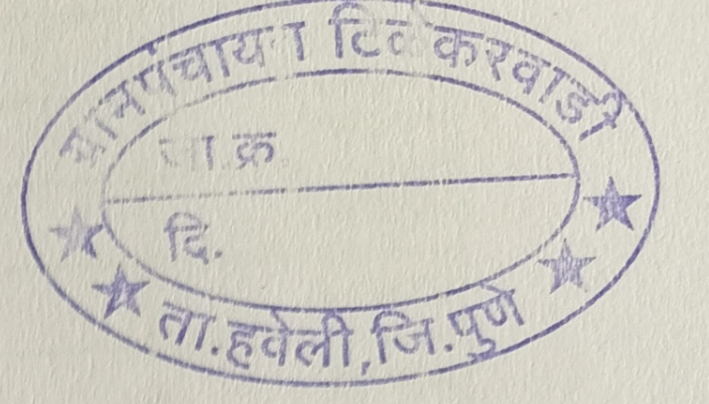 ग्रामपंचायत टिळेकरवाडी
जा.क्र.
दि.
ता.हवेली,जि.पुणे